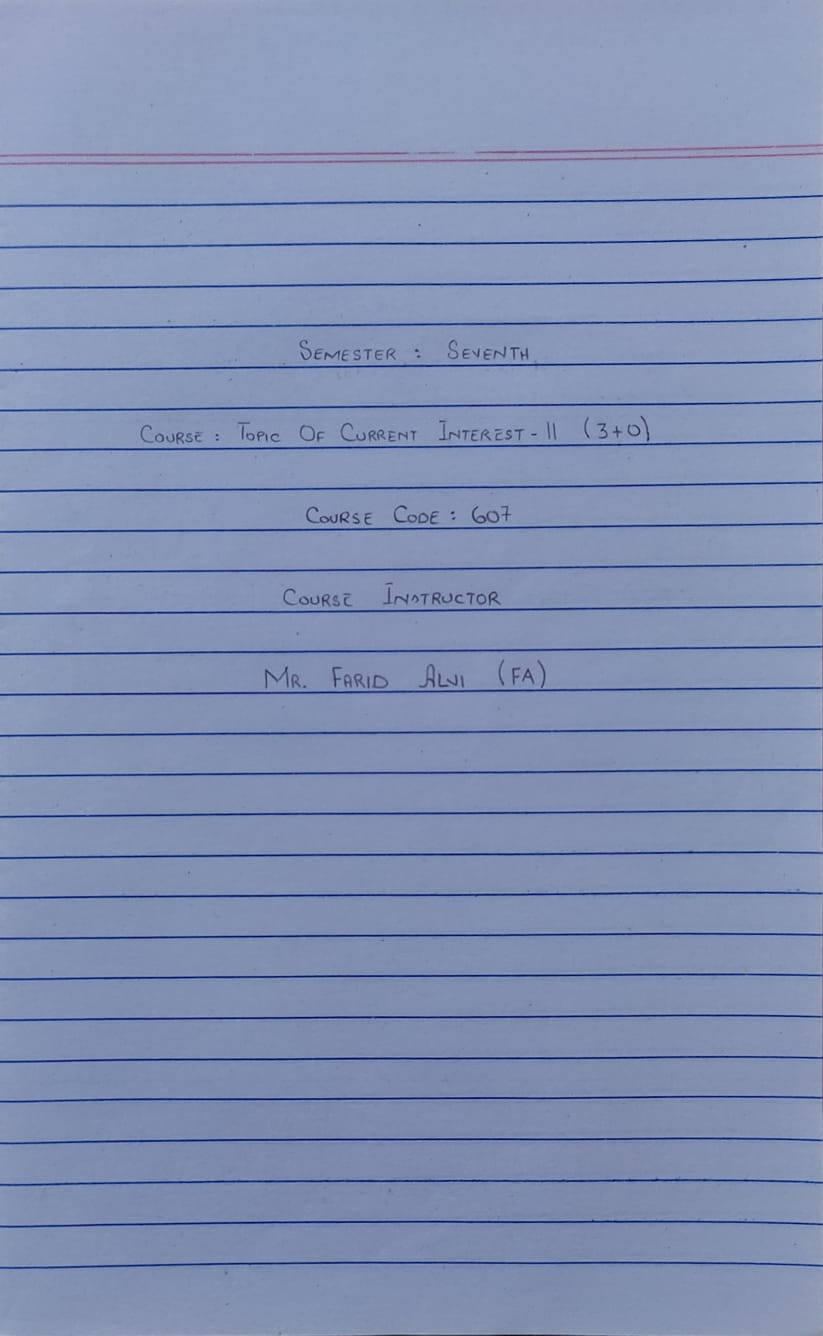 SEMESTER : SEVENTH
COURSE : TOPIC OF CURRENT INTEREST - II (3+0)
COURSE CODE : 607
COURSE INSTRUCTOR
MR. FARID ALVI (FA)